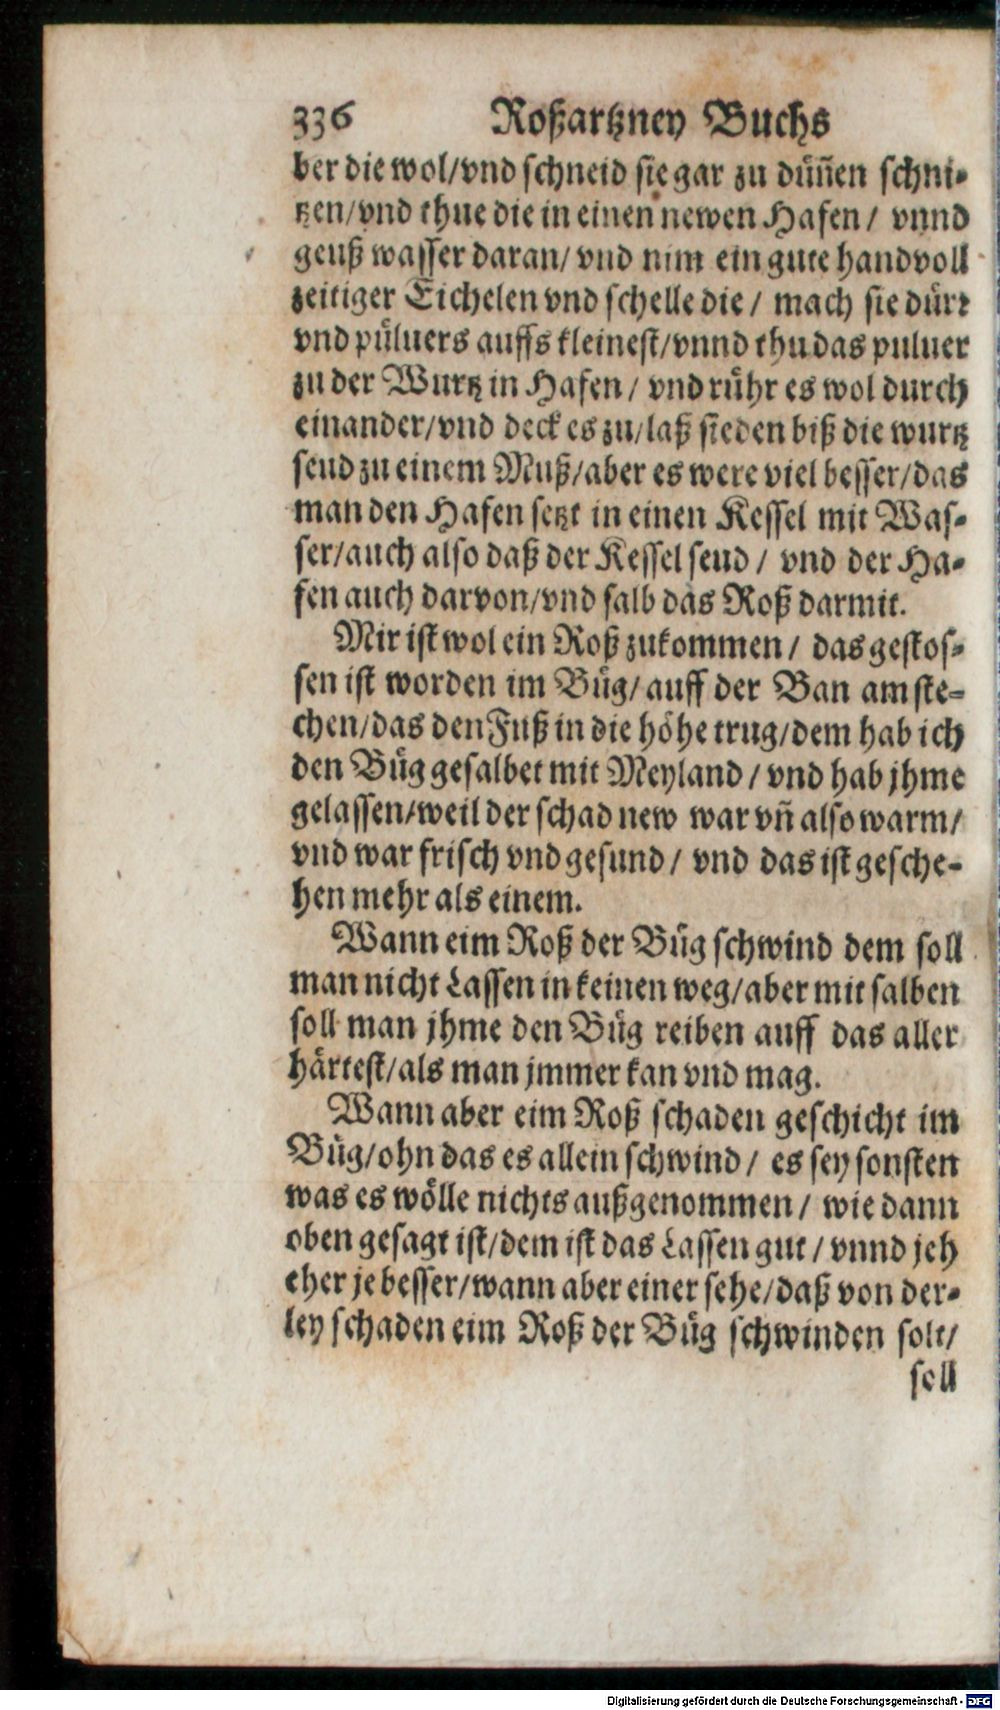 336 Roßartzney Buchs
ber die wol/vnd schneid sie gar zu dün̄en schni-
tzen/vnd thue die in einen newen Hafen/ vnnd
geuß wasser daran/ vnd nim ein gute handvoll
zeitiger Eichelen vnd schelle die/ mach sie dürr
vnd püluers auffs kleinest/vnnd thu das puluer
zu der Wurtz in Hafen/ vnd rühr es wol durch
einander/vnd deck es zu/laß sieden biß die wurtz
seud zu einem Muß/aber es were viel besser/das
man den Hafen setzt in einen Kessel mit Was-
ser/auch also daß der Kessel seud/ vnd der Ha-
fen auch darvon/vnd salb das Roß darmit.
Mir ist wol ein Roß zukommen/ das gestos-
sen ist worden im Büg/ auff der Ban am ste-
chen/das den Fuß in die höhe trug/dem hab ich
den Büg gesalbet mit Meyland/ vnd hab jhme
gelassen/weil der schad new war vn̄ also warm/
vnd war frisch vnd gesund/ vnd das ist gesche-
hen mehr als einem.
Wann eim Roß der Büg schwind dem soll
man nicht Lassen in keinen weg/aber mit salben
soll man jhme den Büg reiben auff das aller
härtest/als man jmmer kan vnd mag.
Wann aber eim Roß schaden geschicht im
Büg/ohn das es allein schwind/ es sey sonsten
was es wölle nichts außgenommen/ wie dann
oben gesagt ist/dem ist das Lassen gut/ vnnd jeh
eher je besser/wann aber einer sehe/daß von der-
ley schaden eim Roß der Büg schwinden solt/
soll
Digitalisierung gefördert durch die Deutsche Forschungsgemeinschaft - DFG